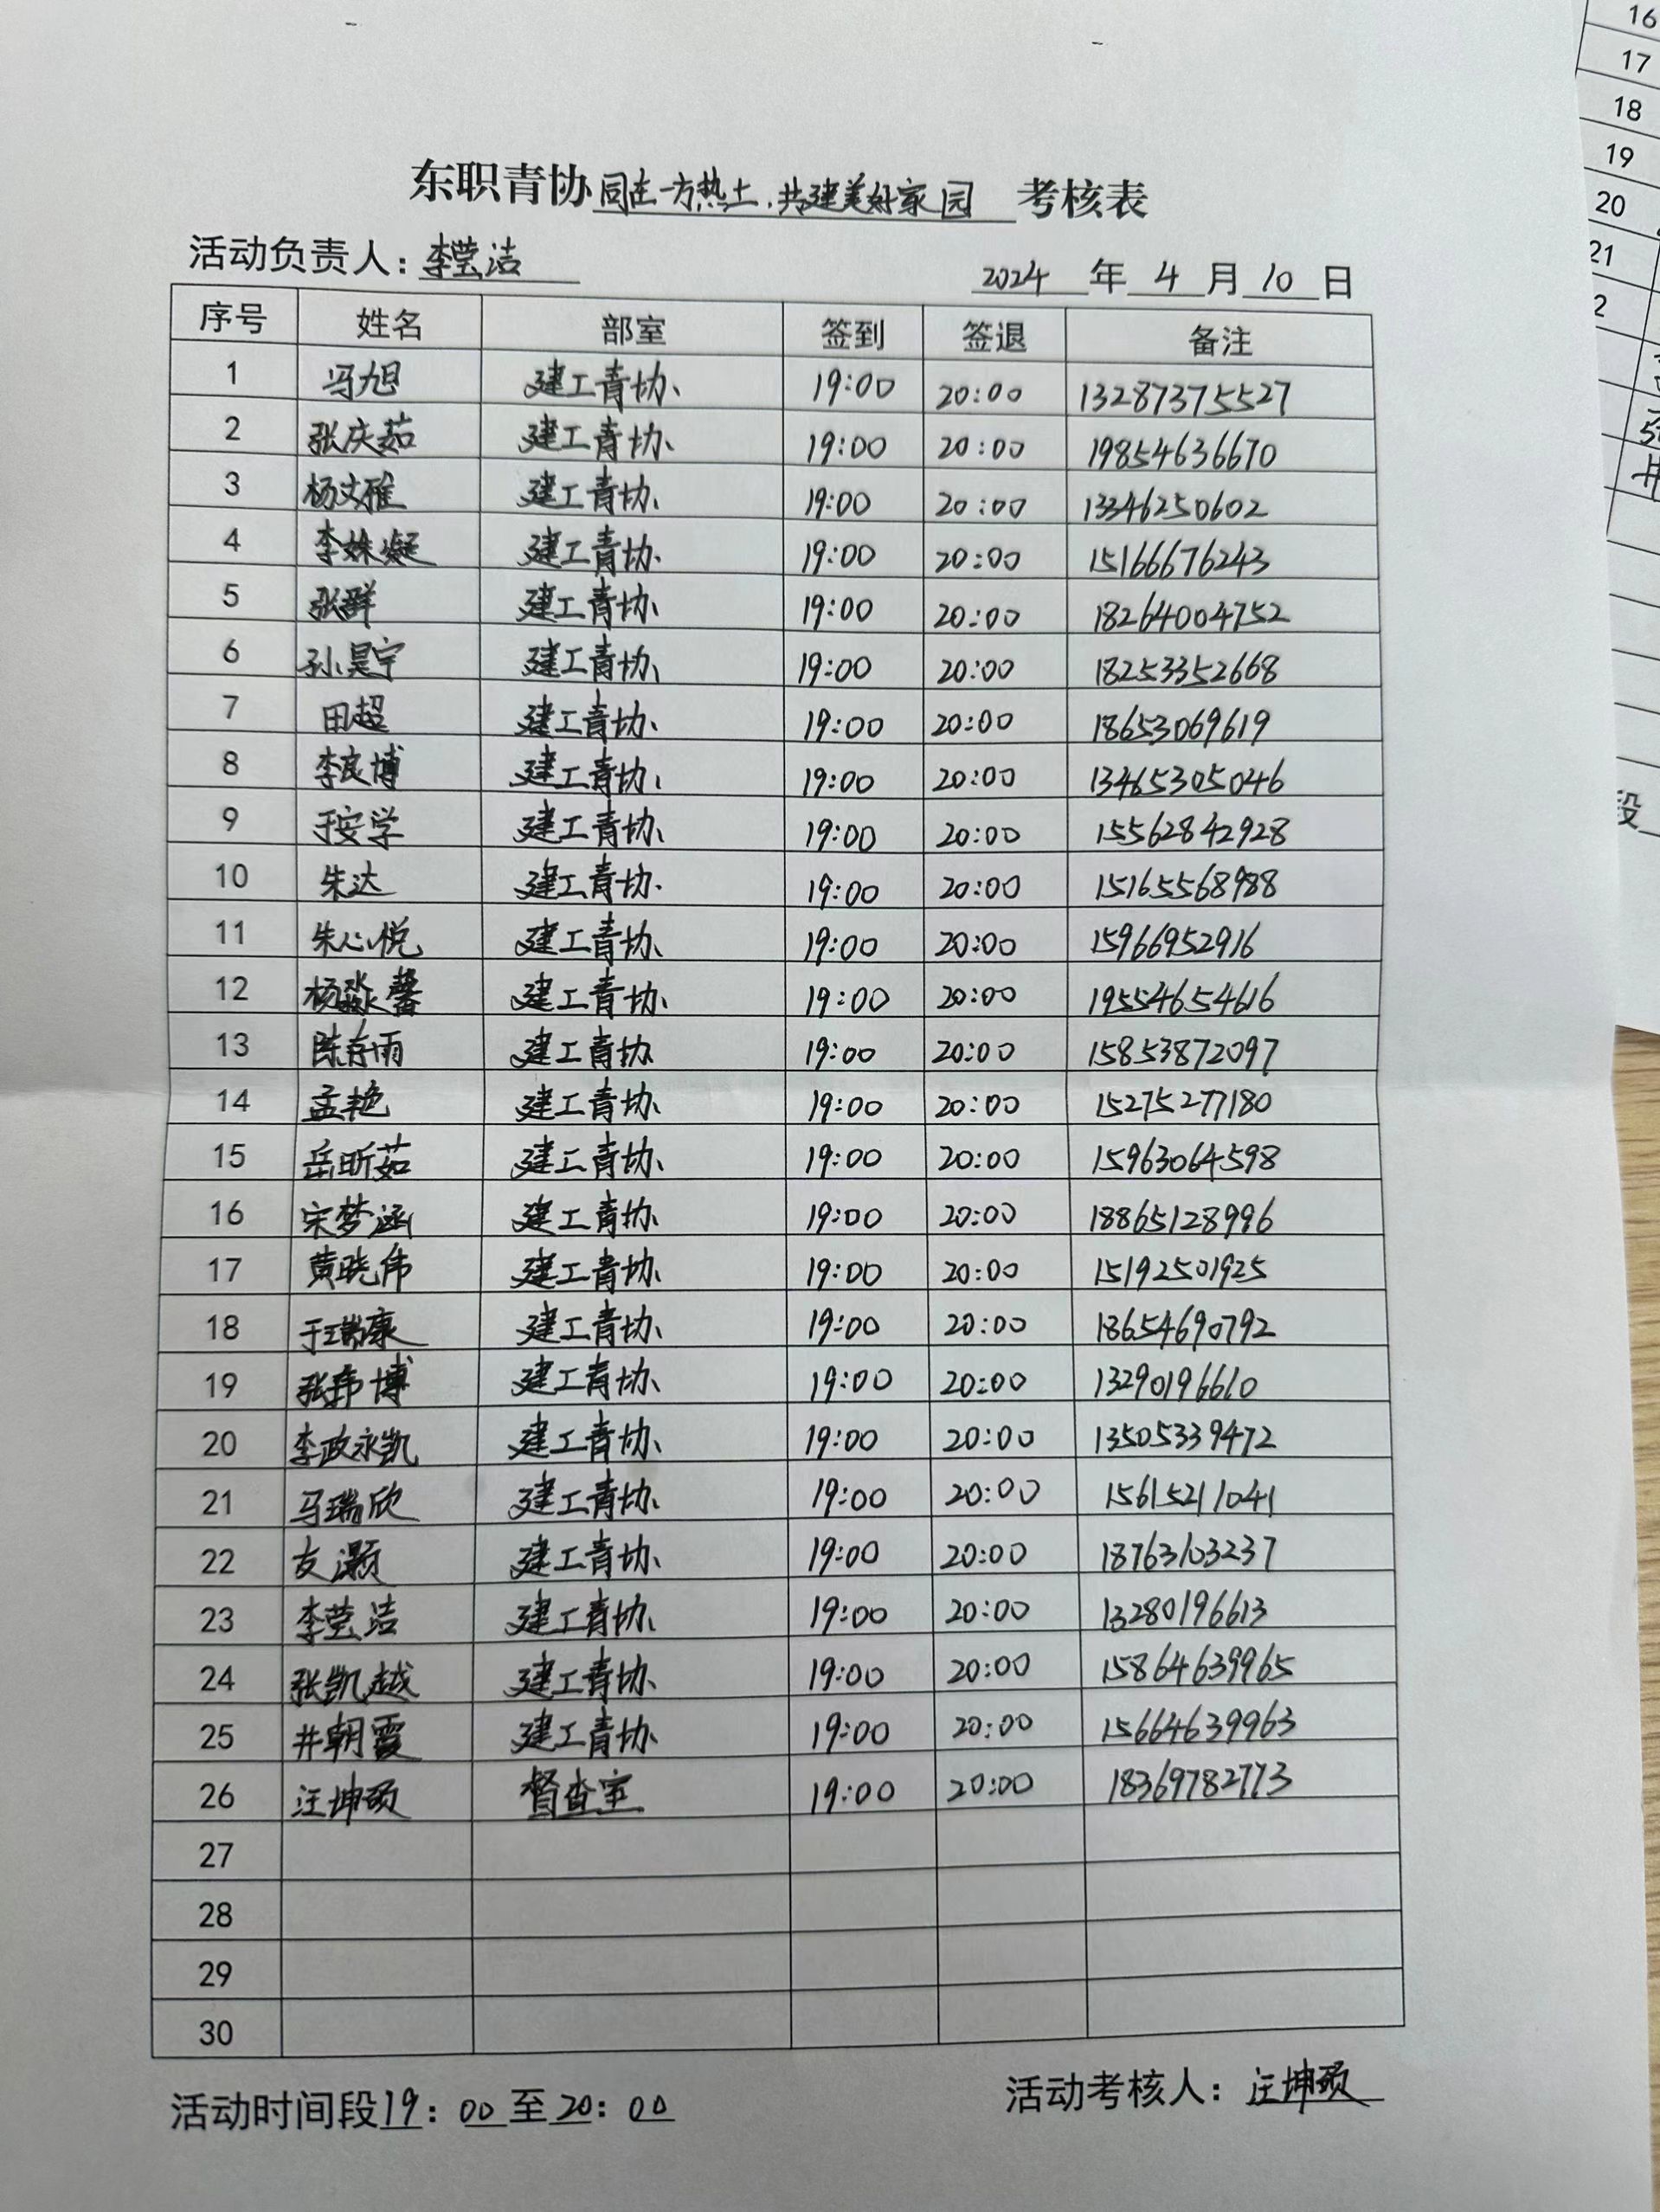 东职青协同在一方热土，共建美好家园 考核表
活动负责人：李莹洁 2024 年 4 月 10 日
序号 姓名 部室 签到 签退 备注
1 冯旭 建工青协 19:00 20:00 13287375527
2 张庆茹 建工青协 19:00 20:00 19854636670
3 杨文雅 建工青协 19:00 20:00 13346250602
4 李姝凝 建工青协 19:00 20:00 15166676243
5 张群 建工青协 19:00 20:00 18264004752
6 孙昊宇 建工青协 19:00 20:00 18253352668
7 田超 建工青协 19:00 20:00 18653069619
8 李良博 建工青协 19:00 20:00 13465305046
9 于安学 建工青协 19:00 20:00 15562842928
10 朱达 建工青协 19:00 20:00 15165568988
11 朱心悦 建工青协 19:00 20:00 15966952916
12 杨淼馨 建工青协 19:00 20:00 19554654616
13 陈存雨 建工青协 19:00 20:00 15853872097
14 孟艳 建工青协 19:00 20:00 15275277180
15 岳昕茹 建工青协 19:00 20:00 15963064598
16 宋梦涵 建工青协 19:00 20:00 18865128996
17 黄晓伟 建工青协 19:00 20:00 15192501925
18 于瑞康 建工青协 19:00 20:00 18654690792
19 张玮博 建工青协 19:00 20:00 13290196610
20 李政永凯 建工青协 19:00 20:00 13505339472
21 马瑞欣 建工青协 19:00 20:00 15615211041
22 友灏 建工青协 19:00 20:00 18763103237
23 李莹洁 建工青协 19:00 20:00 13280196613
24 张凯越 建工青协 19:00 20:00 15864639965
25 井朝霞 建工青协 19:00 20:00 15664639963
26 汪坤硕 督查室 19:00 20:00 18369782773
27
28
29
30
活动时间段19：00至20：00 活动考核人：汪坤硕
16
17
18
19
20
21
2
段